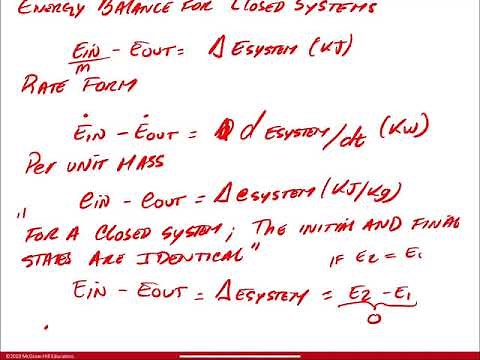 ENERGY BALANCE FOR CLOSED SYSTEMS
Ein/m - Eout = ΔEsystem (KJ)
RATE FORM
Ėin - Ėout = d Esystem/dt (KW)
Per UNIT MASS
ein - eout = Δesystem (KJ/Kg)
"FOR A CLOSED SYSTEM; THE INITIAL AND FINAL
STATES ARE IDENTICAL" IF E2 = E1
Ein - Eout = ΔEsystem = E2 - E1
0
©2019 McGraw-Hill Education.